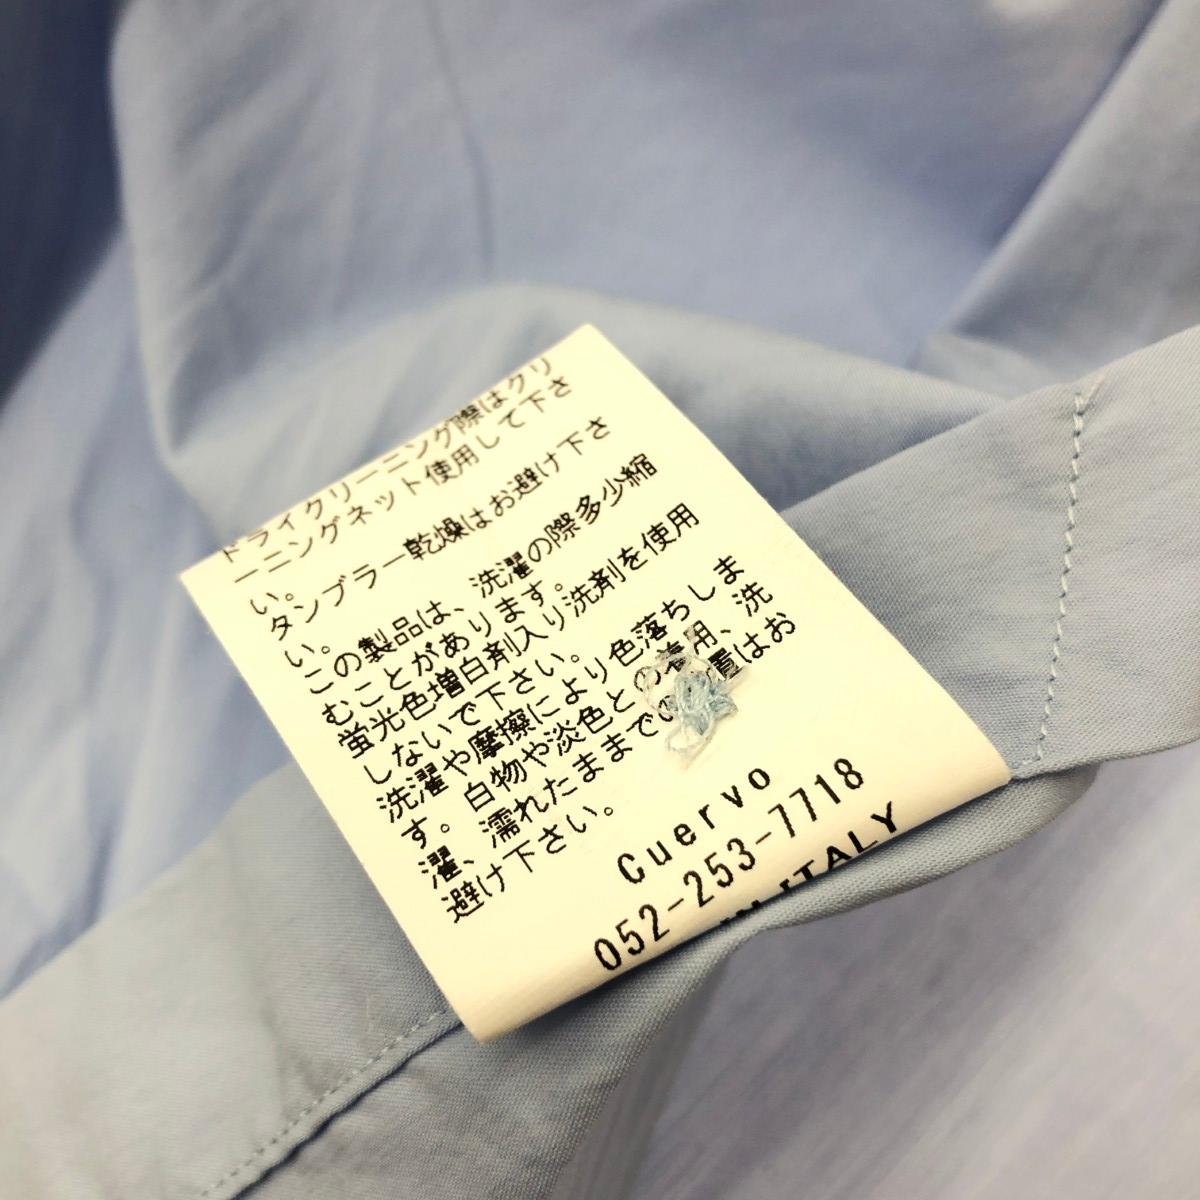 ドライクリーニング際はクリ
ーニングネット使用して下さ
い。
タンブラー乾燥はお避け下さ
い。
この製品は、洗濯の際多少縮
むことがあります。
蛍光色増白剤入り洗剤を使用
しないで下さい。
洗濯や摩擦により色落ちしま
す。白物や淡色との着用、洗
濯、濡れたままでの放置はお
避け下さい。
Cuervo
052-253-7718
IN ITALY